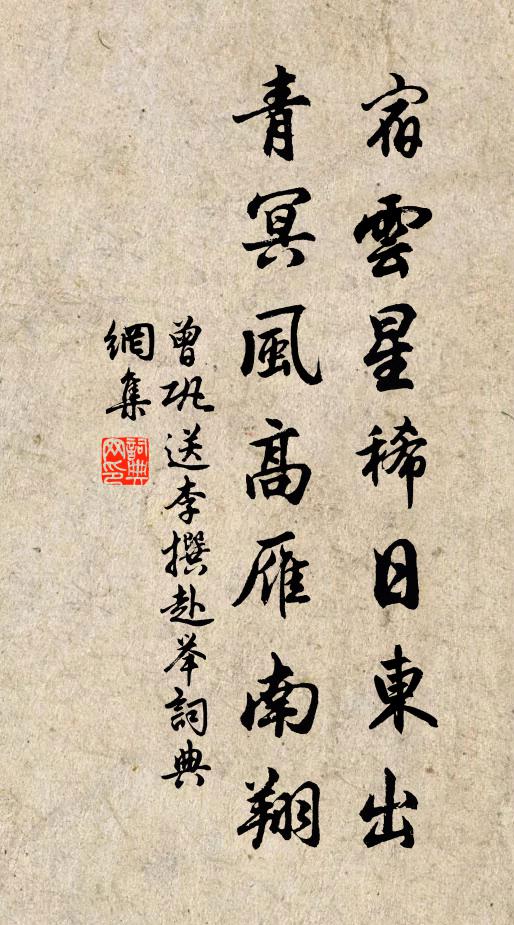 宿雲星稀日東出
青冥風高雁南翔
曾巩送李撰赴举詞典
網集
詞典
网印